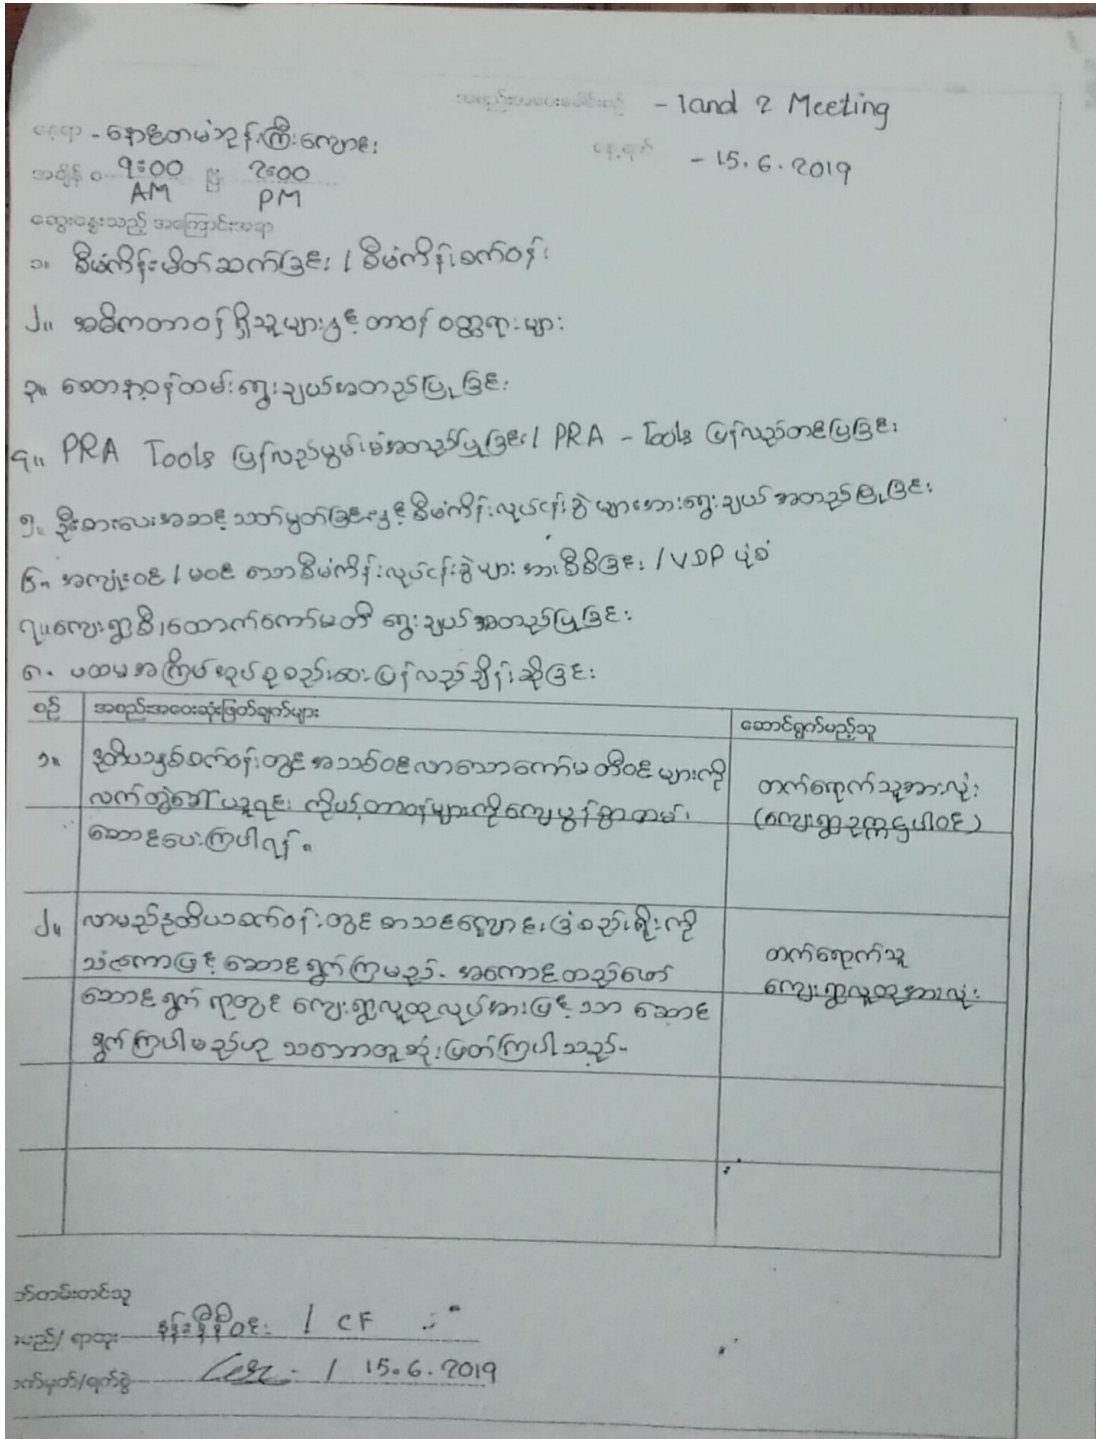 အစည်းအဝေးခေါင်းစဉ် - 1and 2 Meeting
နေရာ - နောင်တမံဘုန်းကြီးကျောင်း
နေ့ရက် - 15.6.2019
အချိန် ၀ 9:00 AM မှ 2:00 PM
ဆွေးနွေးသည့် အကြောင်းအရာ
၁။ စီမံကိန်းမိတ်ဆက်ခြင်း / စီမံကိန်းစက်ဝန်း
၂။ အဓိကတာဝန်ရှိသူများနှင့် တာဝန် ဝတ္တရားများ
၃။ စေတနာ့ဝန်ထမ်းရွေးချယ်အတည်ပြုခြင်း
၄။ PRA Tools ပြန်လည်မွမ်းမံအတည်ပြုခြင်း / PRA - Tools ပြန်လည်တင်ပြခြင်း
၅။ ဦးစားပေးအဆင့် သတ်မှတ်ခြင်းနှင့် စီမံကိန်းလုပ်ငန်းခွဲများအားရွေးချယ် အတည်ပြုခြင်း
၆။ အကျုံးဝင် / မဝင် သောစီမံကိန်းလုပ်ငန်းခွဲများ အားစိစစ်ခြင်း / VDP ပုံစံ
၇။ ကျေးရွာစီ/ထောက်ကော်မတီ ရွေးချယ်အတည်ပြုခြင်း
၈. ပထမအကြိမ်အုပ်စုစည်းဝေး ပြန်လည်ချိန်းဆိုခြင်း
စဉ် အစည်းအဝေးဆုံးဖြတ်ချက်များ ဆောင်ရွက်မည့်သူ
၁။ ဒုတိယနှစ်စက်ဝန်းတွင် အသစ်ဝင်လာသောကော်မတီဝင်များကို
လက်တွဲခေါ်ယူရင်း ကိုယ့်တာဝန်များကိုကျေပွန်စွာထမ်း
ဆောင်ပေးကြပါရန်။
တက်ရောက်သူအားလုံး
(ကျေးရွာဥက္ကဋ္ဌပါဝင်)
၂။ လာမည့်ဒုတိယစက်ဝန်းတွင် စာသင်ကျောင်းခြံစည်းရိုးကို
သံဇကာဖြင့် ဆောင်ရွက်ကြမည်. အကောင်အထည်ဖော်
ဆောင်ရွက် ရာတွင် ကျေးရွာလူထုလုပ်အားဖြင့်သာ ဆောင်
ရွက်ကြပါမည်ဟု သဘောတူဆုံးဖြတ်ကြပါသည်-
တက်ရောက်သူ
ကျေးရွာလူထုအားလုံး
မှတ်တမ်းတင်သူ
အမည်/ ရာထူး / CF
လက်မှတ်/ရက်စွဲ / 15.6.2019